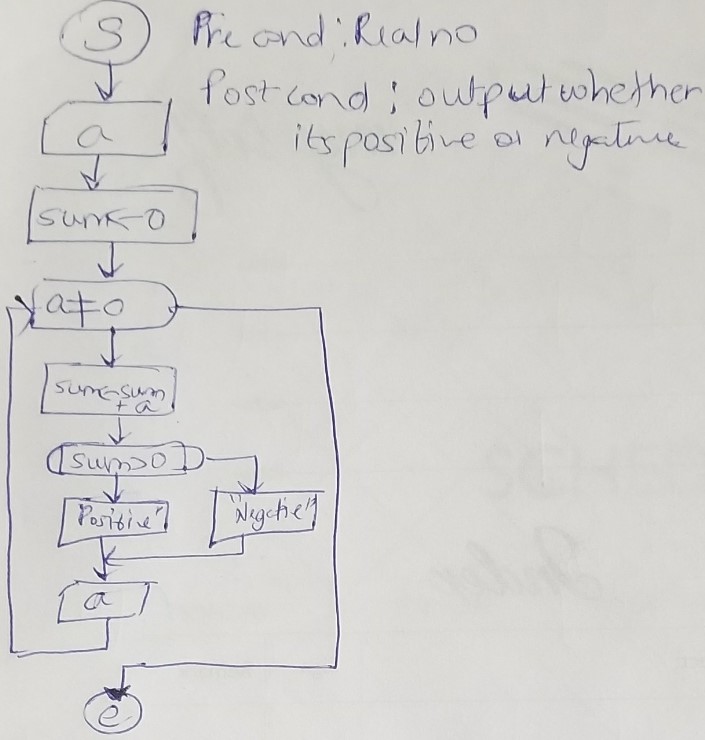 S
Pre cond : Real no
Post cond ; output whether
its positive or negative
a
sum←0
a≠0
sum←sum
+ a
sum>0
"Positive"
"Negative"
a
e